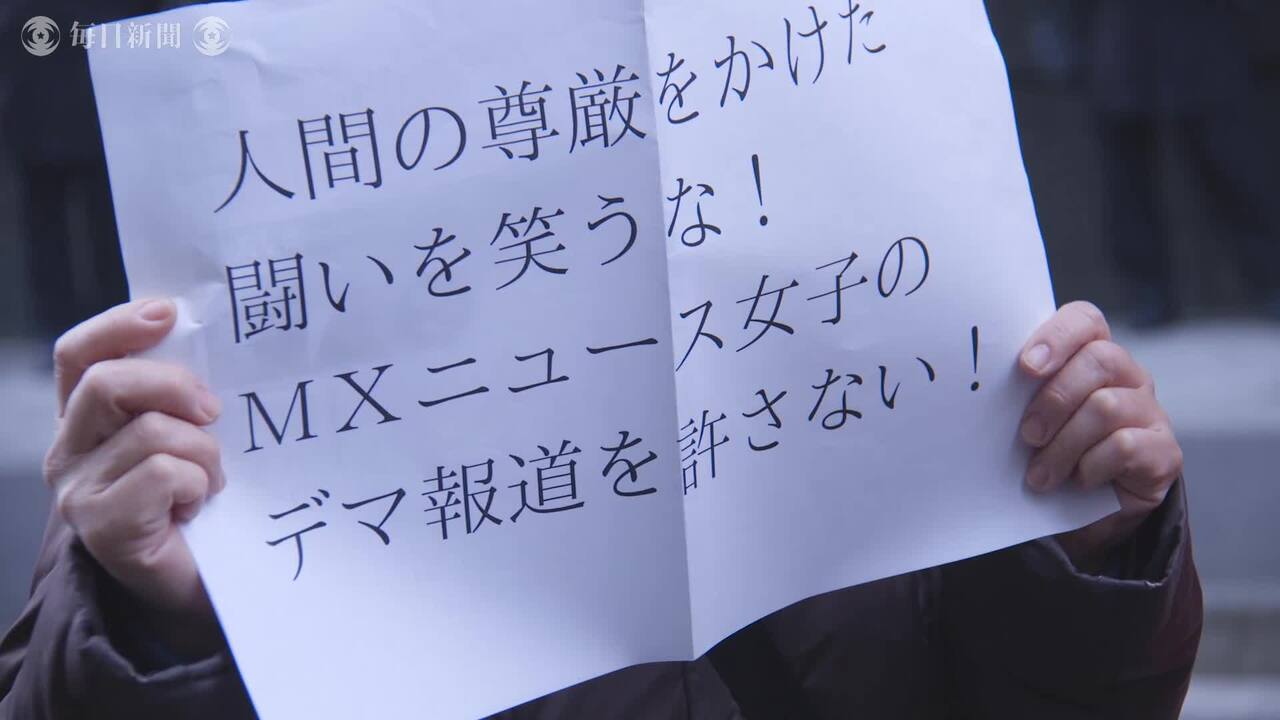 毎日新聞
人間の尊厳をかけた
闘いを笑うな！
ＭＸニュース女子の
デマ報道を許さない！